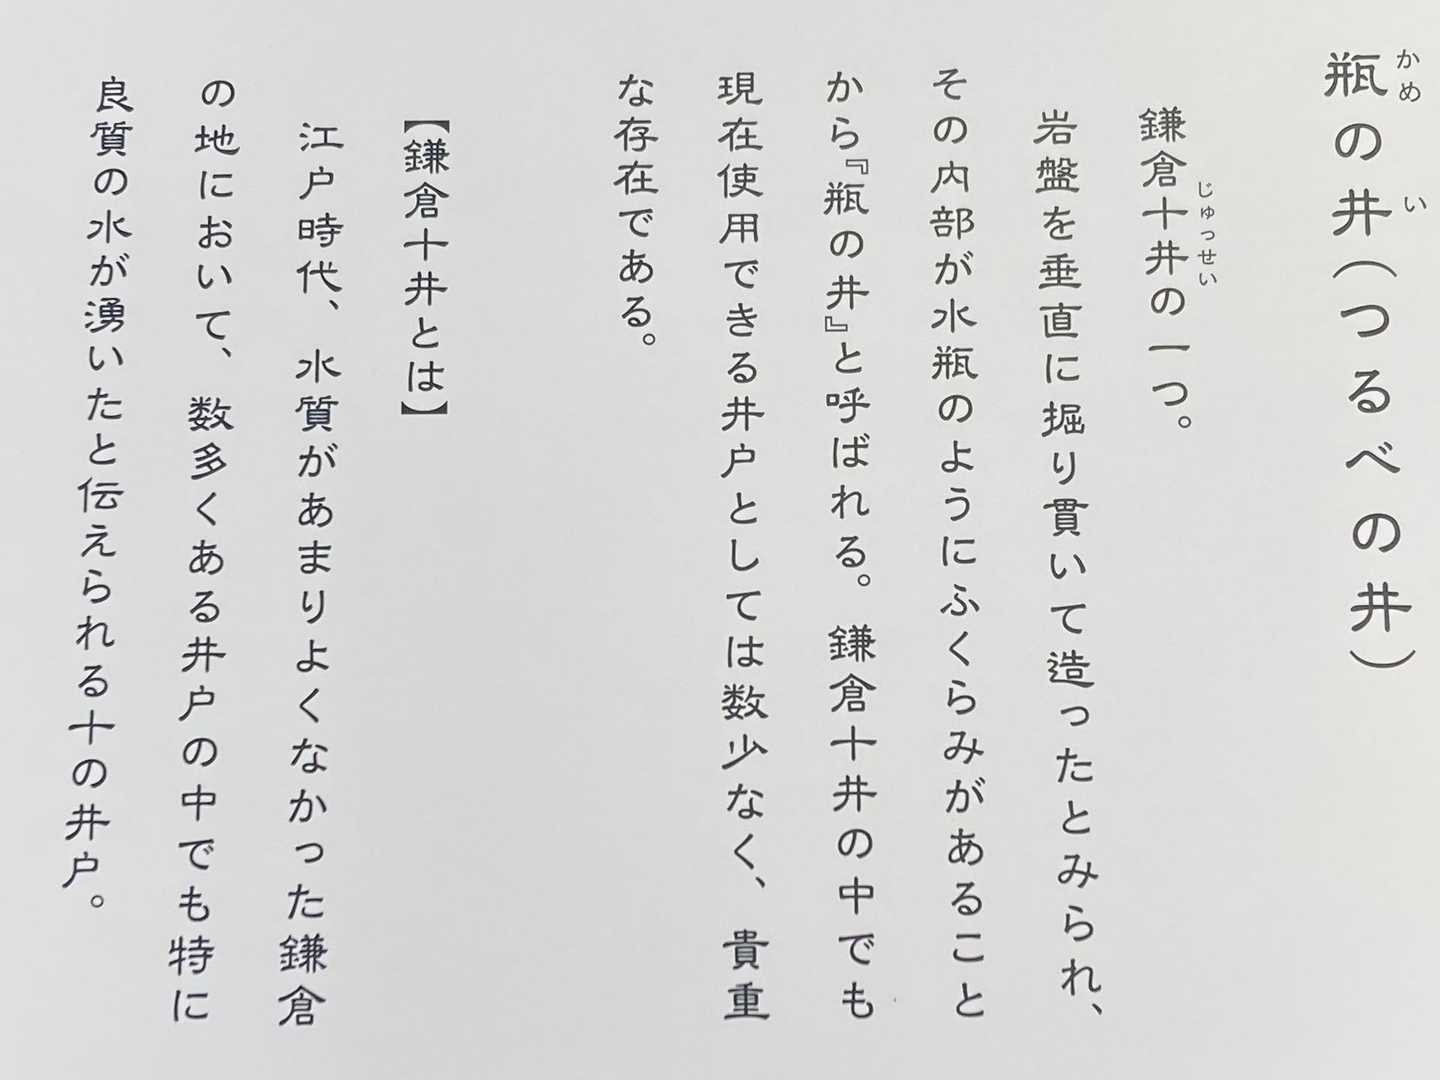 瓶の井(つるべの井)
かめ
い
鎌倉十井の一つ。
じゅっせい
岩盤を垂直に掘り貫いて造ったとみられ、
その内部が水瓶のようにふくらみがあること
から『瓶の井』と呼ばれる。鎌倉十井の中でも
現在使用できる井戸としては数少なく、貴重
な存在である。
【鎌倉十井とは】
江戸時代、水質があまりよくなかった鎌倉
の地において、数多くある井戸の中でも特に
良質の水が湧いたと伝えられる十の井戸。